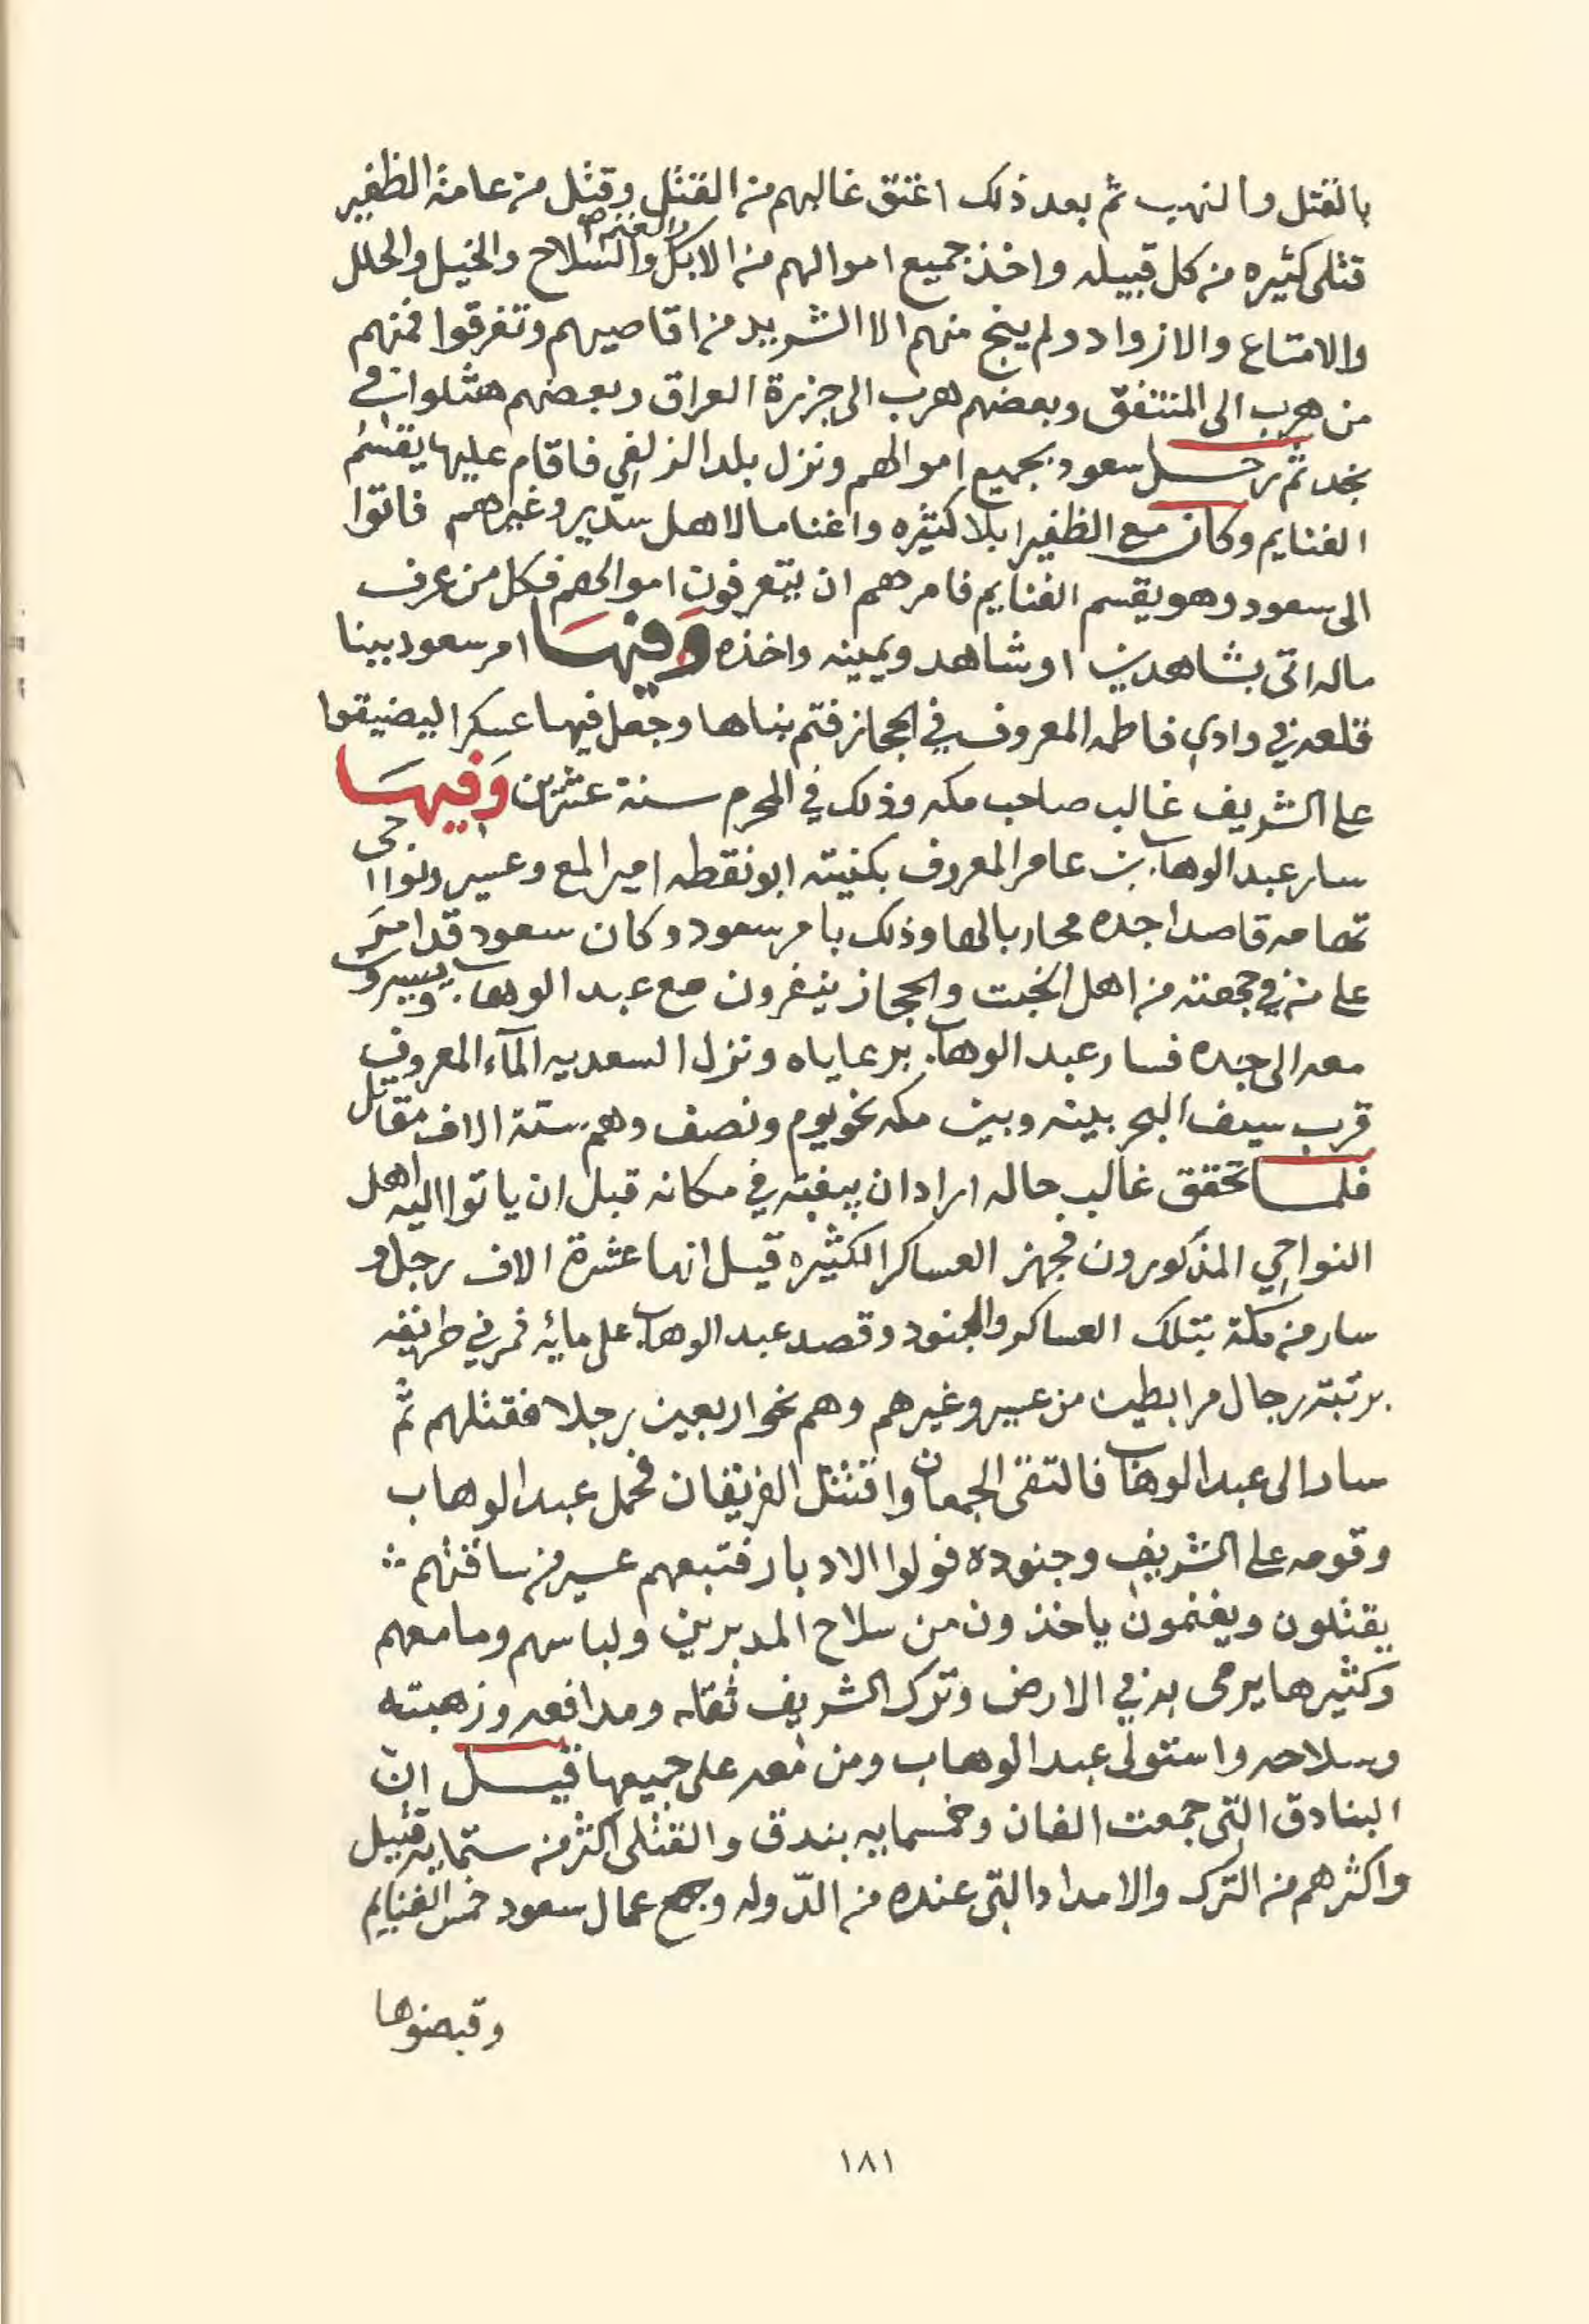 بالقتل والنهب ثم بعد ذلك اعتق غالبهم من القتل وقتل من عامة الظفير
قتلى كثيره من كل قبيله واخذ جميع اموالهم من الابل والغنم والسلاح والخيل والحلل
والامتاع والازواد ولم ينج منهم الا الشريد من اقاصيهم وتفرقوا فمنهم
من هرب الى المنتفق وبعضهم هرب الى جزيرة العراق وبعضهم هثلوا في
نجد ثم رحل سعود بجميع اموالهم ونزل بلد الزلفي فاقام عليها يقسم
الغنايم وكان مع الظفير ابلا كثيره واغناما لاهل سدير وغيرهم فاتوا
الى سعود وهو يقسم الغنايم فامرهم ان يتعرفون اموالهم فكل من عرف
ماله اتى بشاهدين او شاهد ويمينه واخذه وفيها امر سعود ببنا
قلعه في وادي فاطمه المعروف في الحجاز فتم بناها وجعل فيها عسكرا ليضيقوا
على الشريف غالب صاحب مكه وذلك في المحرم سنة عشرين وفيها
سار عبد الوهاب بن عامر المعروف بكنيته ابو نقطه امير المع وعسير ونواحي
تهامه قاصدا جده محاربا لها وذلك بامر سعود وكان سعود قد امر
على من في جهته من اهل الخبت والحجاز ينفرون مع عبد الوهاب ويسيرون
معه الى جده فسار عبد الوهاب برعاياه ونزل السعديه المآء المعروف
قرب سيف البحر بينه وبين مكه نحو يوم ونصف وهم ستة الاف مقاتل
فلما تحقق غالب حاله اراد ان يبغته في مكانه قبل ان ياتوا اليه اهل
النواحي المذكورون فجهز العساكر الكثيره قيل انها عشرة الاف رجل و
سار من مكة بتلك العساكر والجنود وقصد عبد الوهاب على مائه فمر في طريقه
برتبته رجال مرابطين من عسير وغيرهم وهم نحو اربعين رجلا فقتلهم ثم
سار الى عبد الوهاب فالتقى الجمعان واقتتل الفريقان فحمل عبد الوهاب
وقومه على الشريف وجنوده فولوا الادبار فتبعهم عسير من ساقتهم
يقتلون ويغنمون ياخذون من سلاح المدبرين ولباسهم وما معهم
وكثيرها يرمى به في الارض وترك الشريف ثقله ومدافعه وزهبته
وسلاحه واستولى عبد الوهاب ومن معه على جميعها قيل ان
البنادق التي جمعت الفان وخمسمايه بندق والقتلى اكثر من ستمايه قتيل
واكثرهم من الترك والامداد التي عنده من الدوله وجمع عمال سعود خمس الغنايم
وقبضوها
١٨١